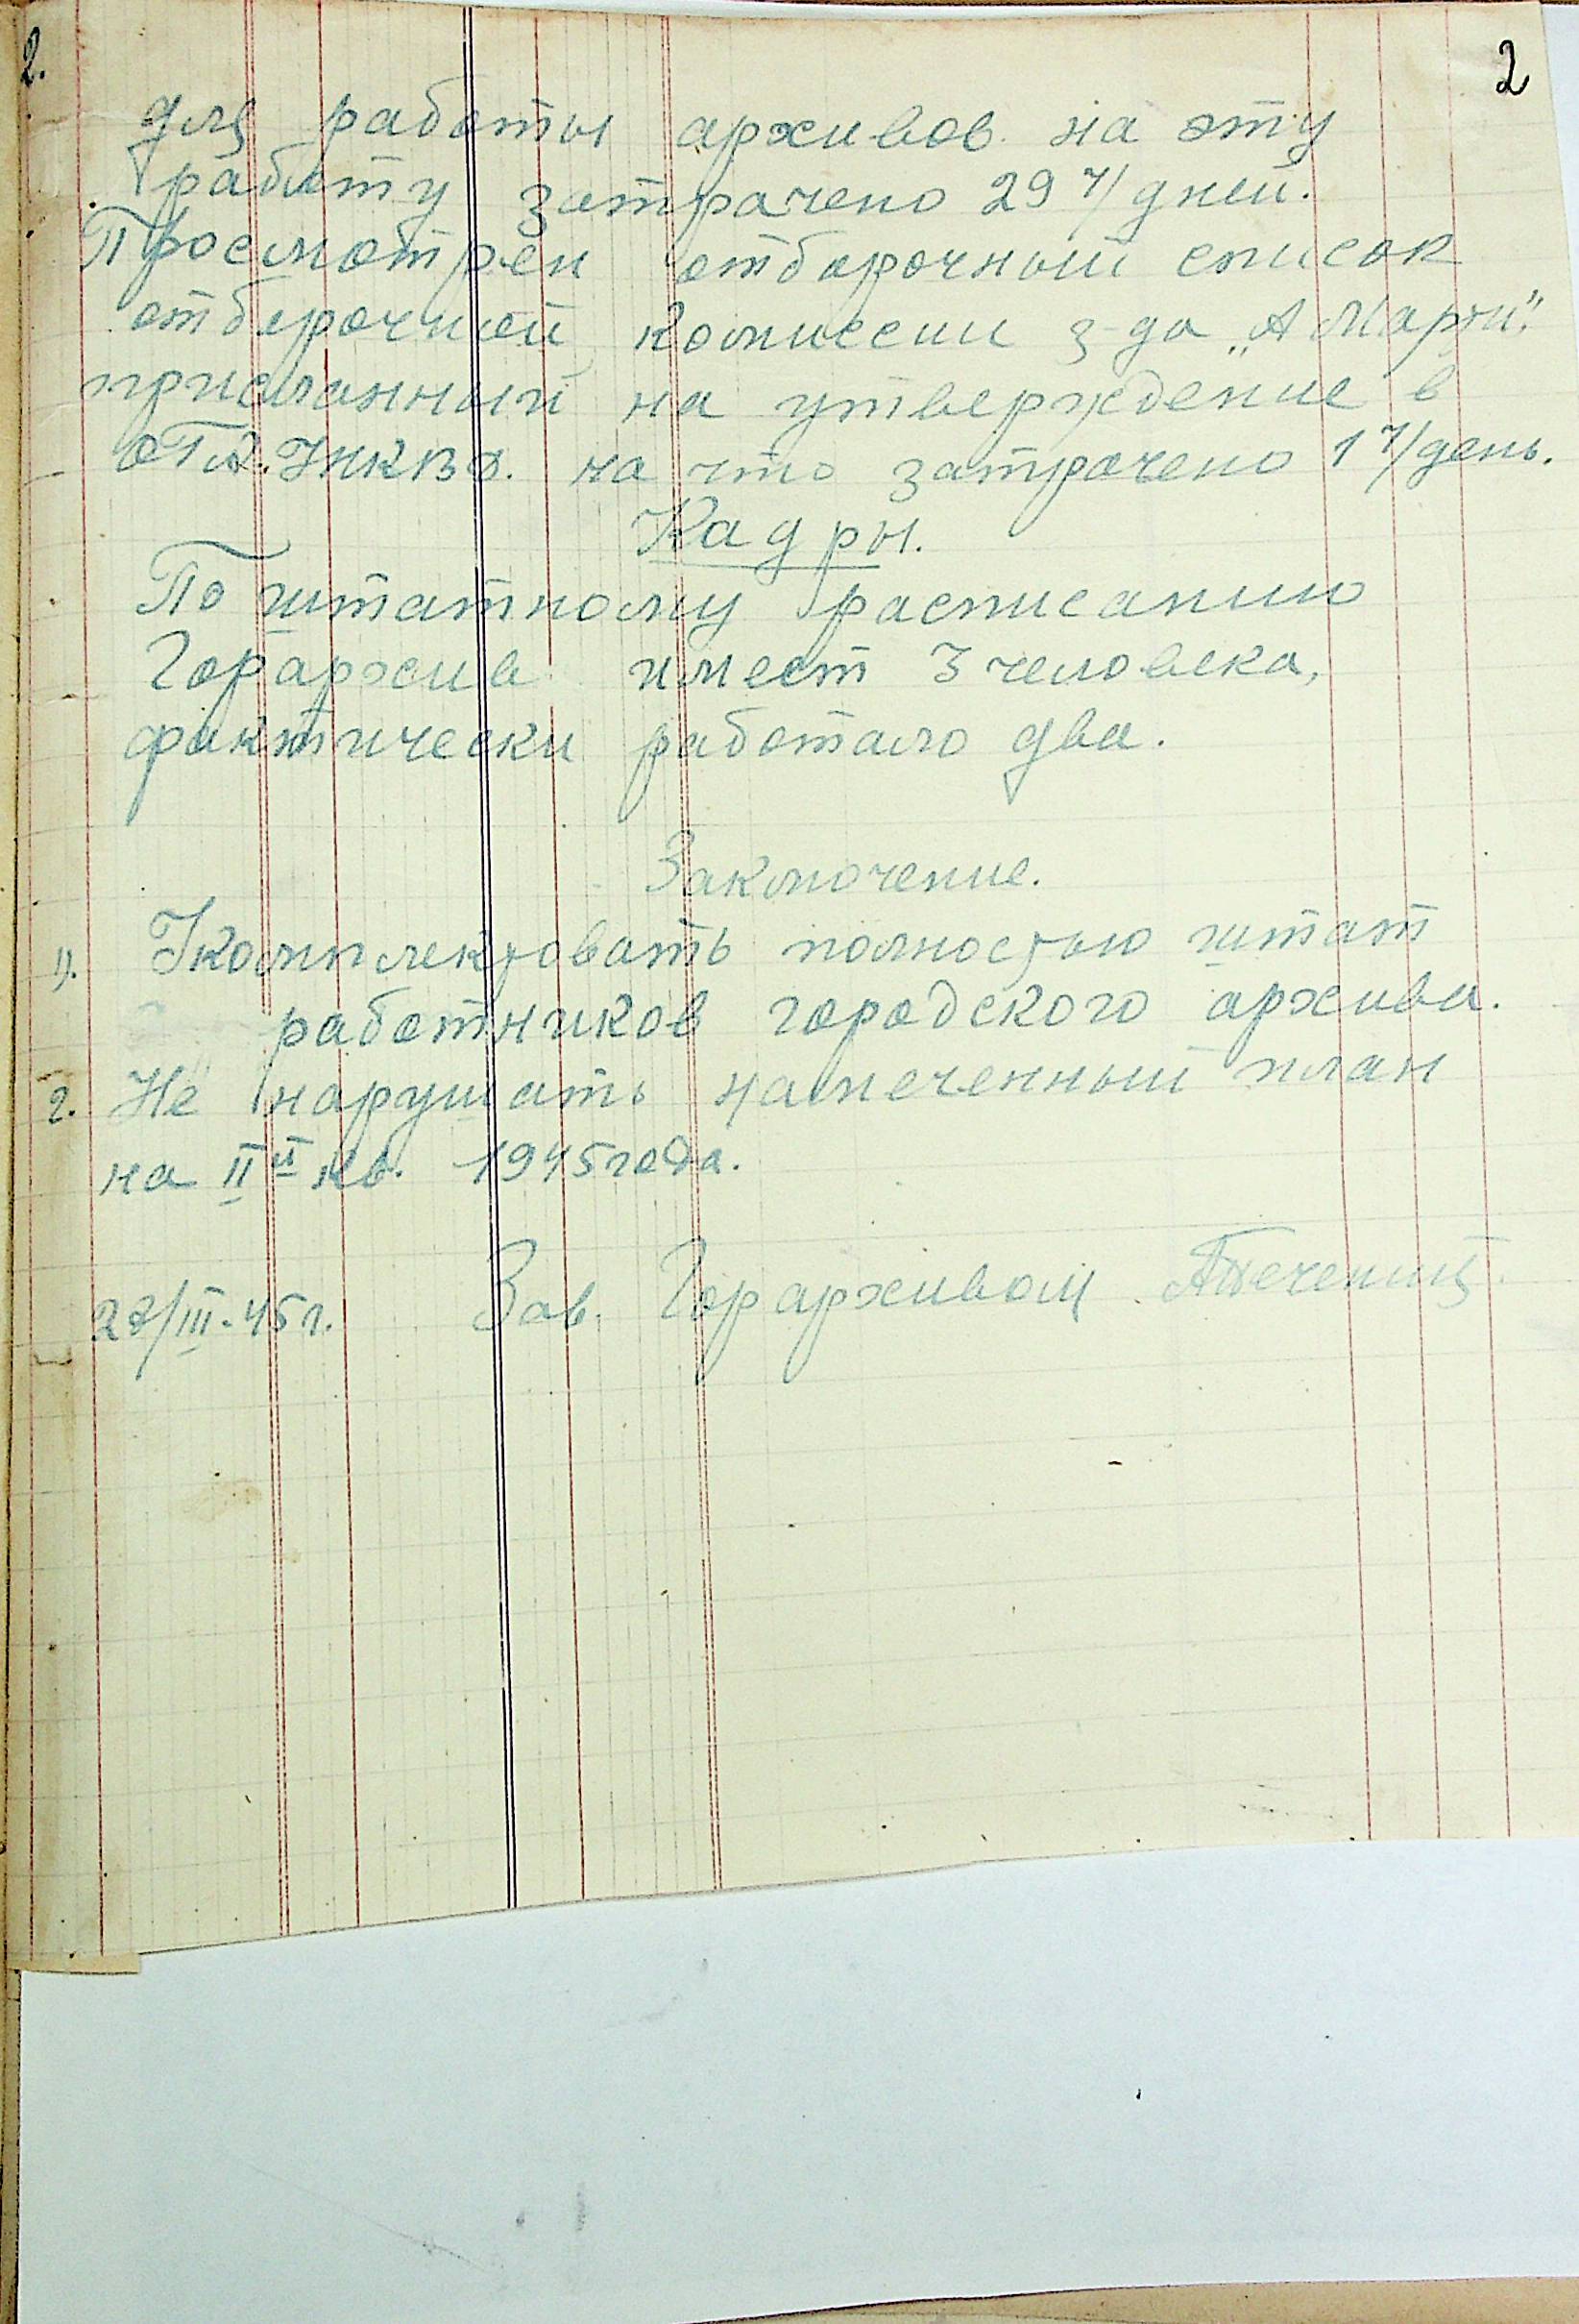 2.
2
для работы архивов на эту
работу затрачено 29 ч/дней.
Просмотрен отборочный список
отборочной комиссии з-да „А Марти".
присланный на утверждение в
ОГА. УНКВД. на что затрачено 1 ч/день.
Кадры.
По штатному расписанию
Горархив имеет 3 человека,
фактически работало два.
Заключение.
1). Укомплектовать полностью штат
работников городского архива.
2. Не нарушать намеченный план
на II й кв. 1945 года.
28/III-45 г. Зав. Горархивом